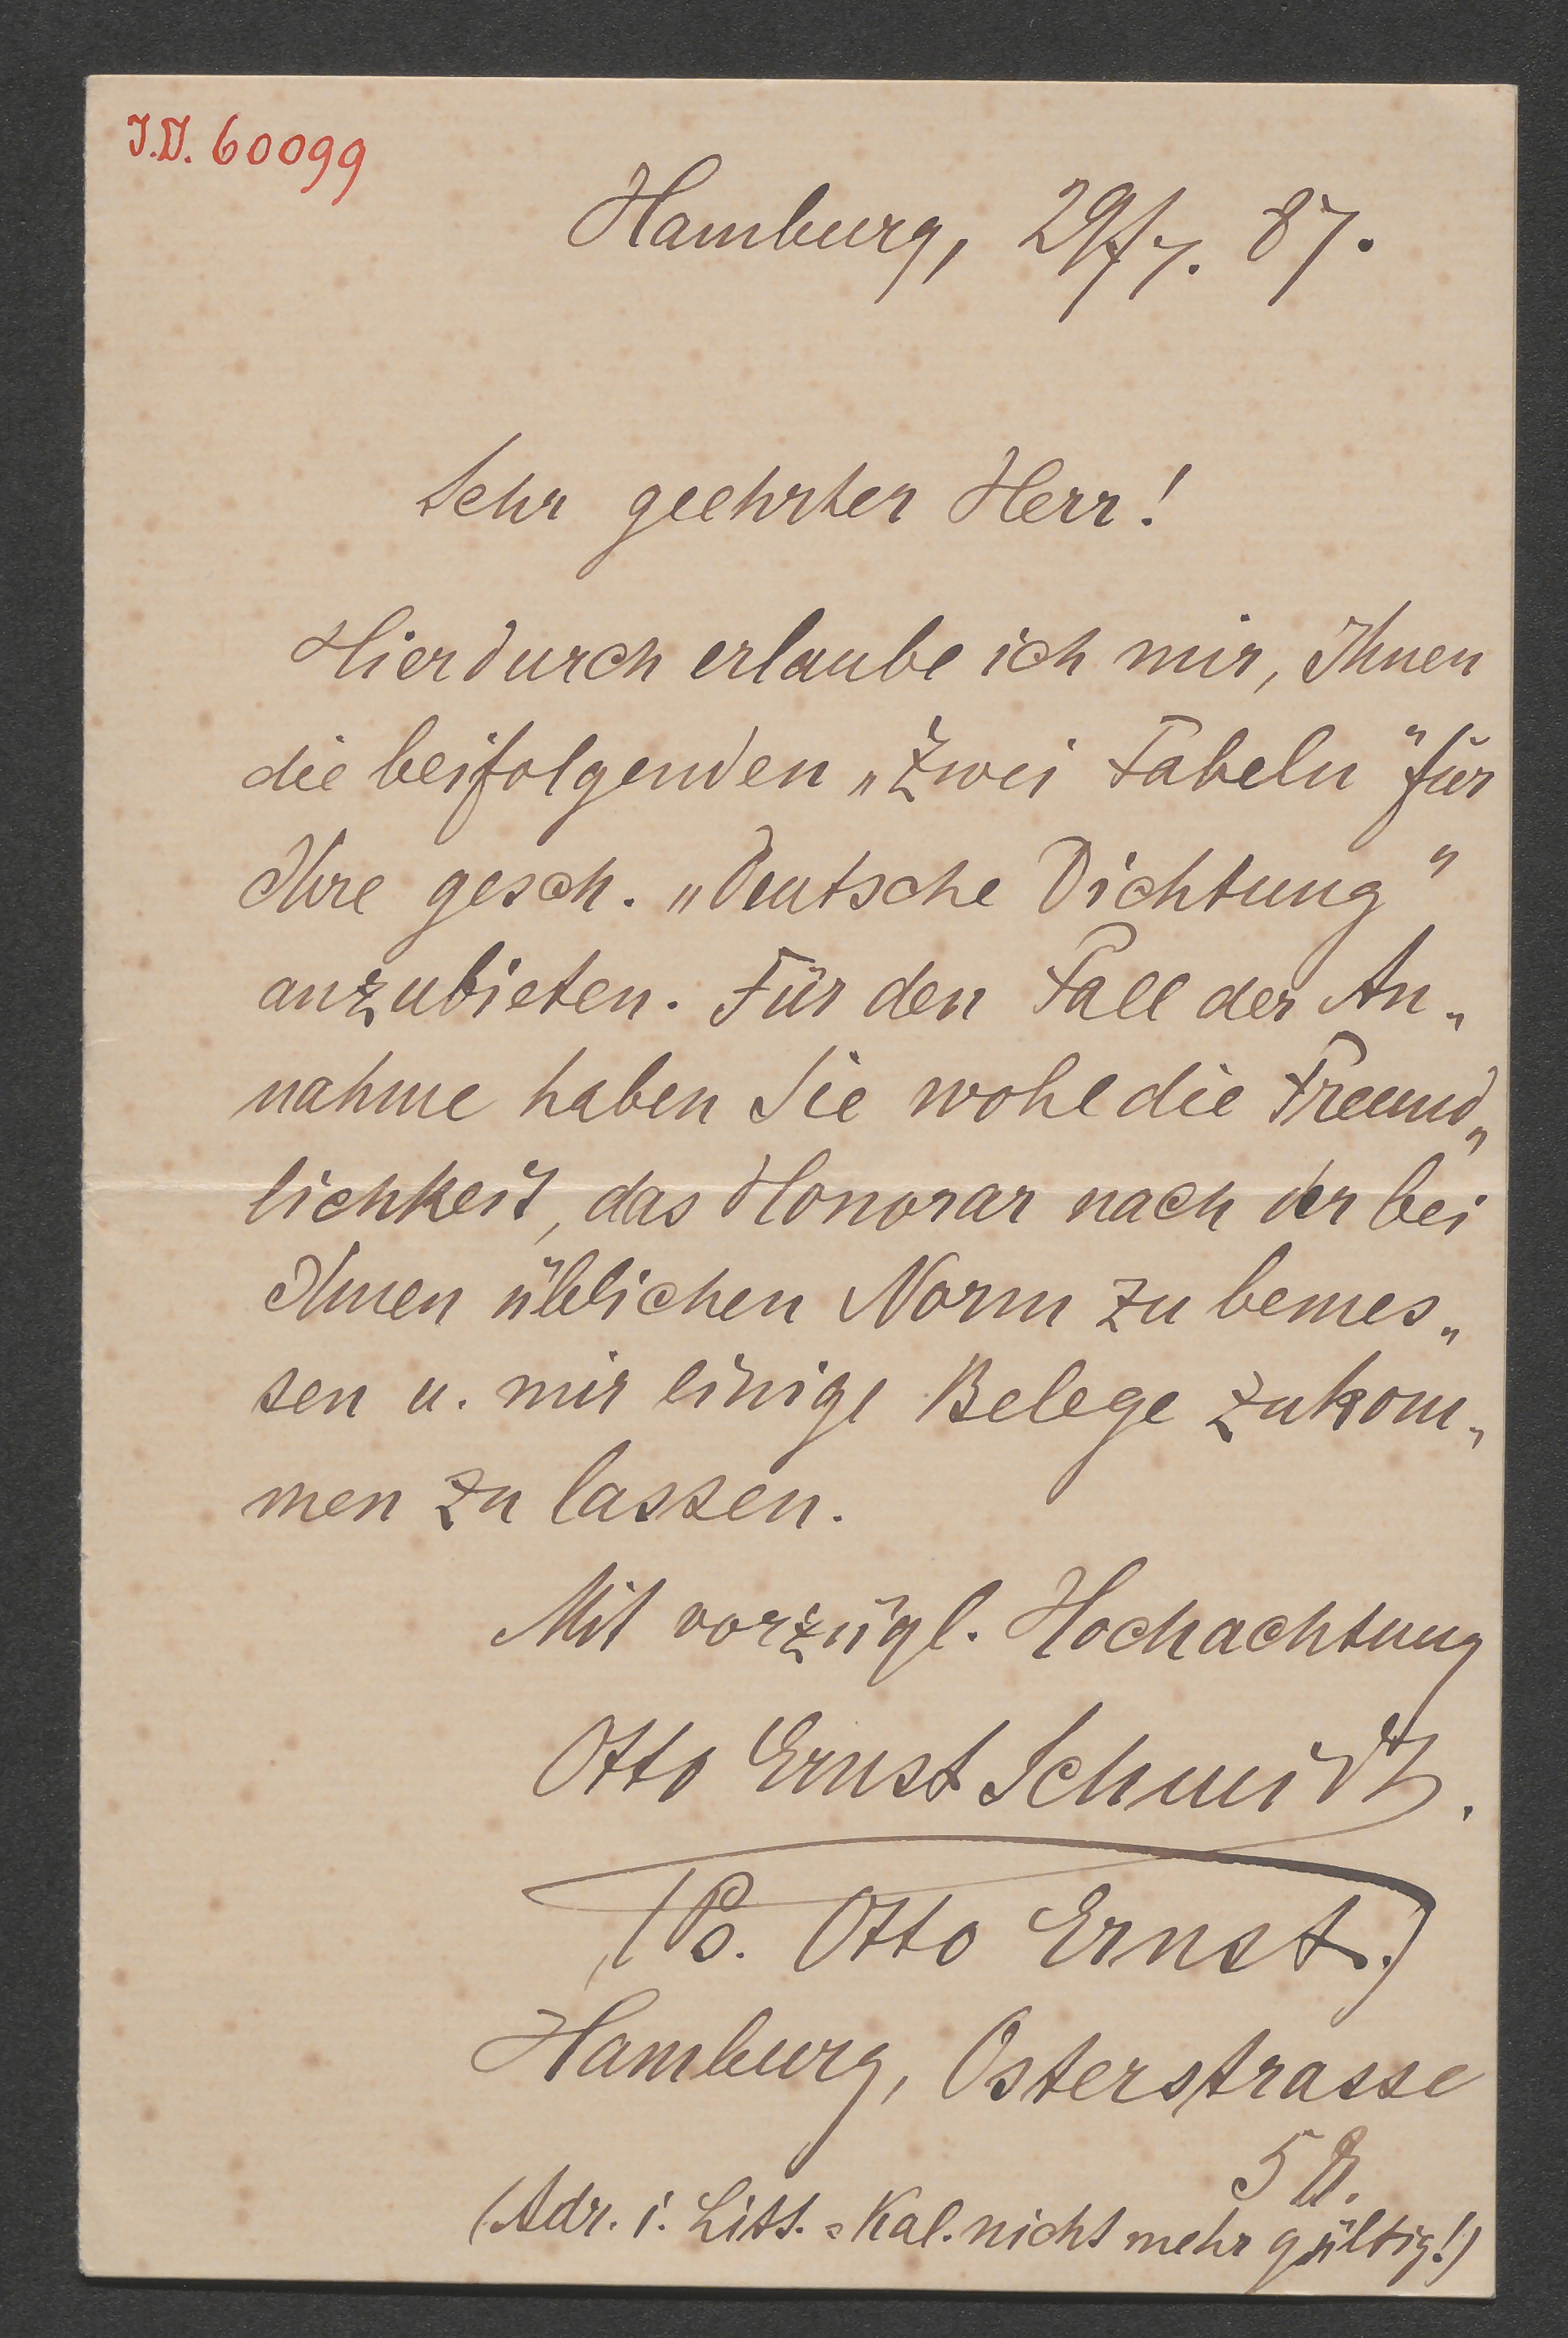 J.N. 60099
Hamburg, 29/7. 87.
Sehr geehrter Herr!
Hierdurch erlaube ich mir, Ihnen
die beifolgenden „Zwei Fabeln" für
Ihre gesch. „Deutsche Dichtung"
anzubieten. Für den Fall der An„
nahme haben Sie wohl die Freund„
lichkeit, das Honorar nach der bei
Ihnen üblichen Norm zu bemes„
sen u. mir einige Belege zukom„
men zu lassen.
Mit vorzügl. Hochachtung
Otto Ernst Schmidt.
(Ps. Otto Ernst.)
Hamburg, Osterstrasse
5
(Adr. i. Litt.=Kal. nicht mehr gültig!)